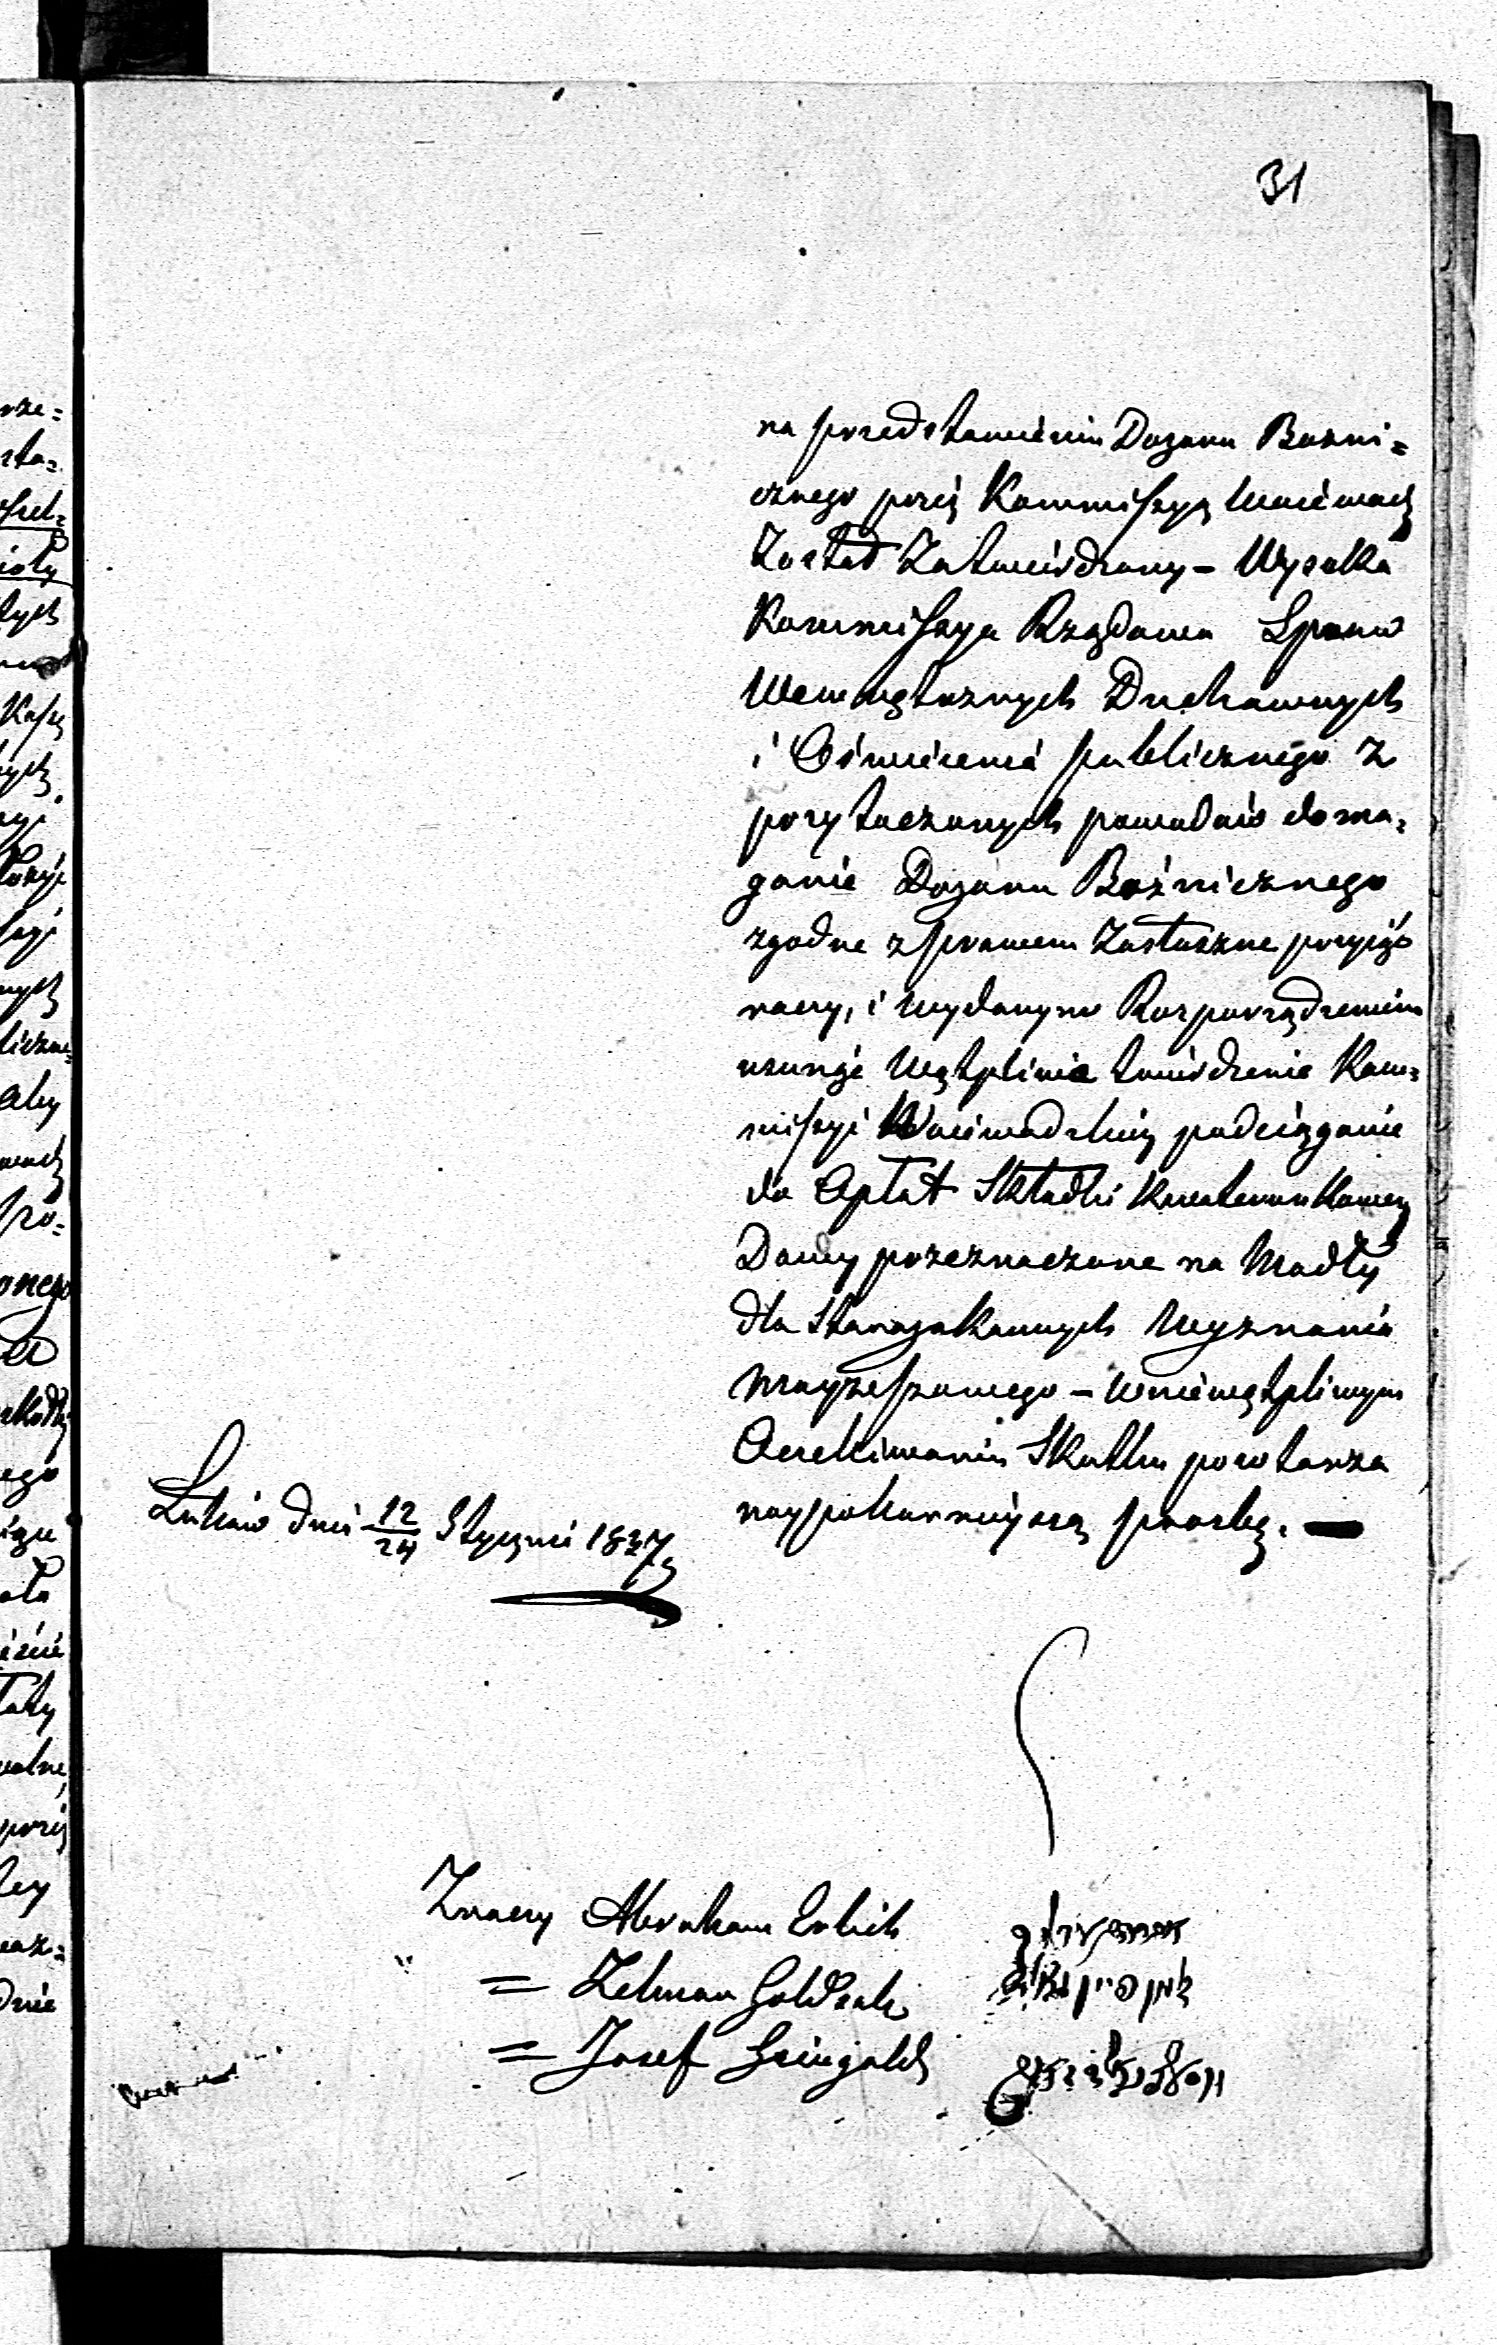 31
na przedstawienie Dozoru Bożni=
cznego przez Kommissyą Wojewodz
Został Zatwierdzony – Wysoka
Kommissya Rządowa Spraw
Wewnętrznych Duchownych
i Oświecenia publicznego z
przytoczonych powodów doma=
ganie Dozoru Bóżnicznego
zgodne z prawem Za słuszne przyjąć
raczy, i wydanym Rozporządzeniem
usunąć wątpliwie twierdzenie Kom=
missyi Wojewodzkiej podciąganie
do Opłat Składki Kwaterunkowey
Domy przeznaczone na Modły
dla Starozakonnych Wyznania
Mojżeszowego – w niewątpliwym
Oczekiwaniu Skutku powtarza
naypokornieyszą prośbę. —
Łuków dnia 12/24 Stycznia 1837
Znaczy Abraham Erlich
= Zelman
= Josef Gringold